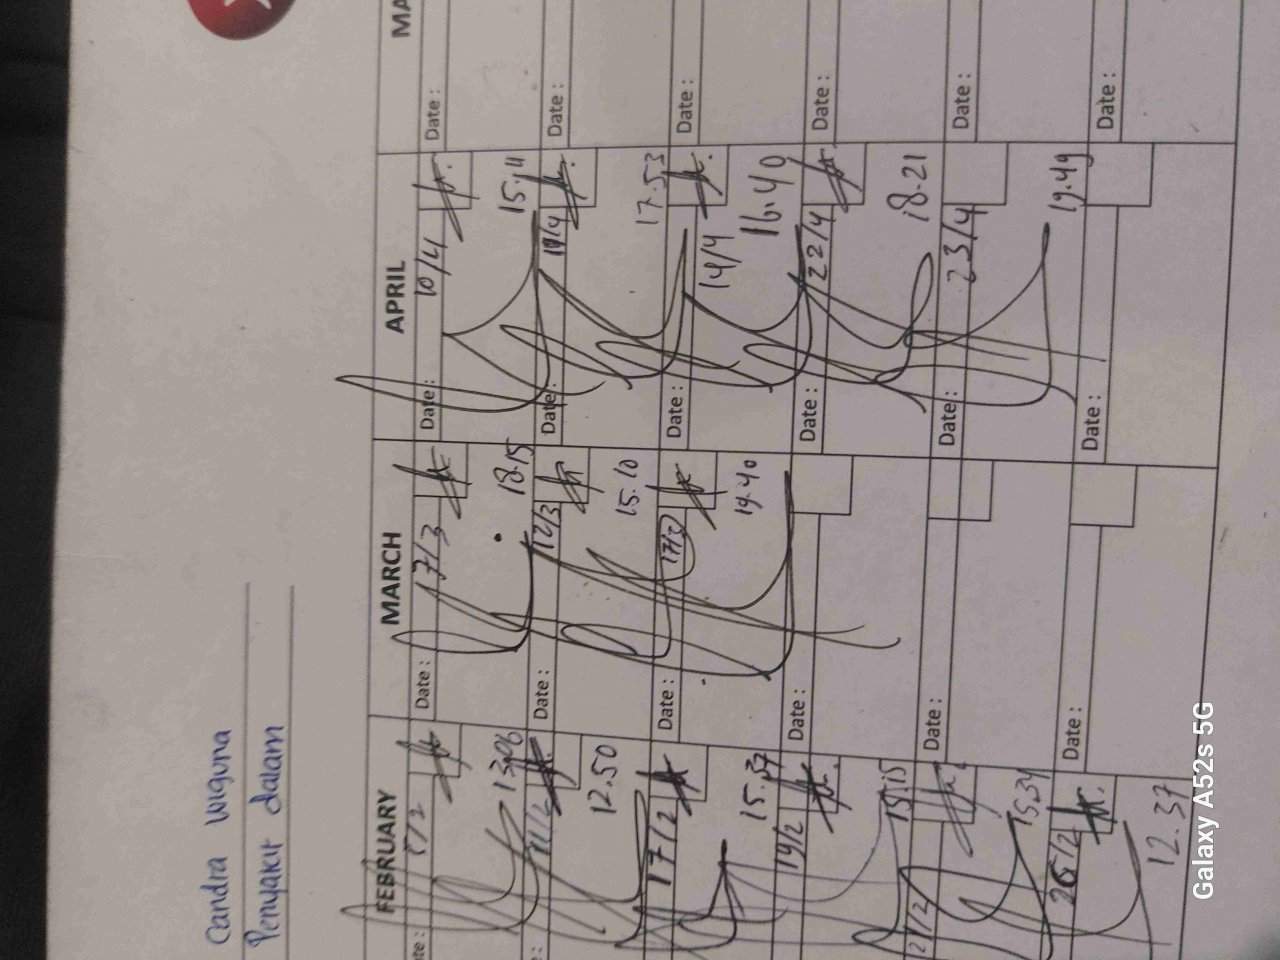 Candra Wiguna
Penyakit dalam
FEBRUARY
MARCH
APRIL
MA
Date:
17/3
Date:
10/4
Date:
13.06
18.15
15.11
Date:
12/3
Date:
Date:
12.50
15.10
17.53
17/2
Date:
Date:
14/4
Date:
15.37
19.40
16.40
19/2
Date:
Date:
22/4
Date:
15.15
18.21
21/2
Date:
Date:
23/4
Date:
15.34
19.49
26/2
Date:
Date:
Date:
12.37
Galaxy A52s 5G